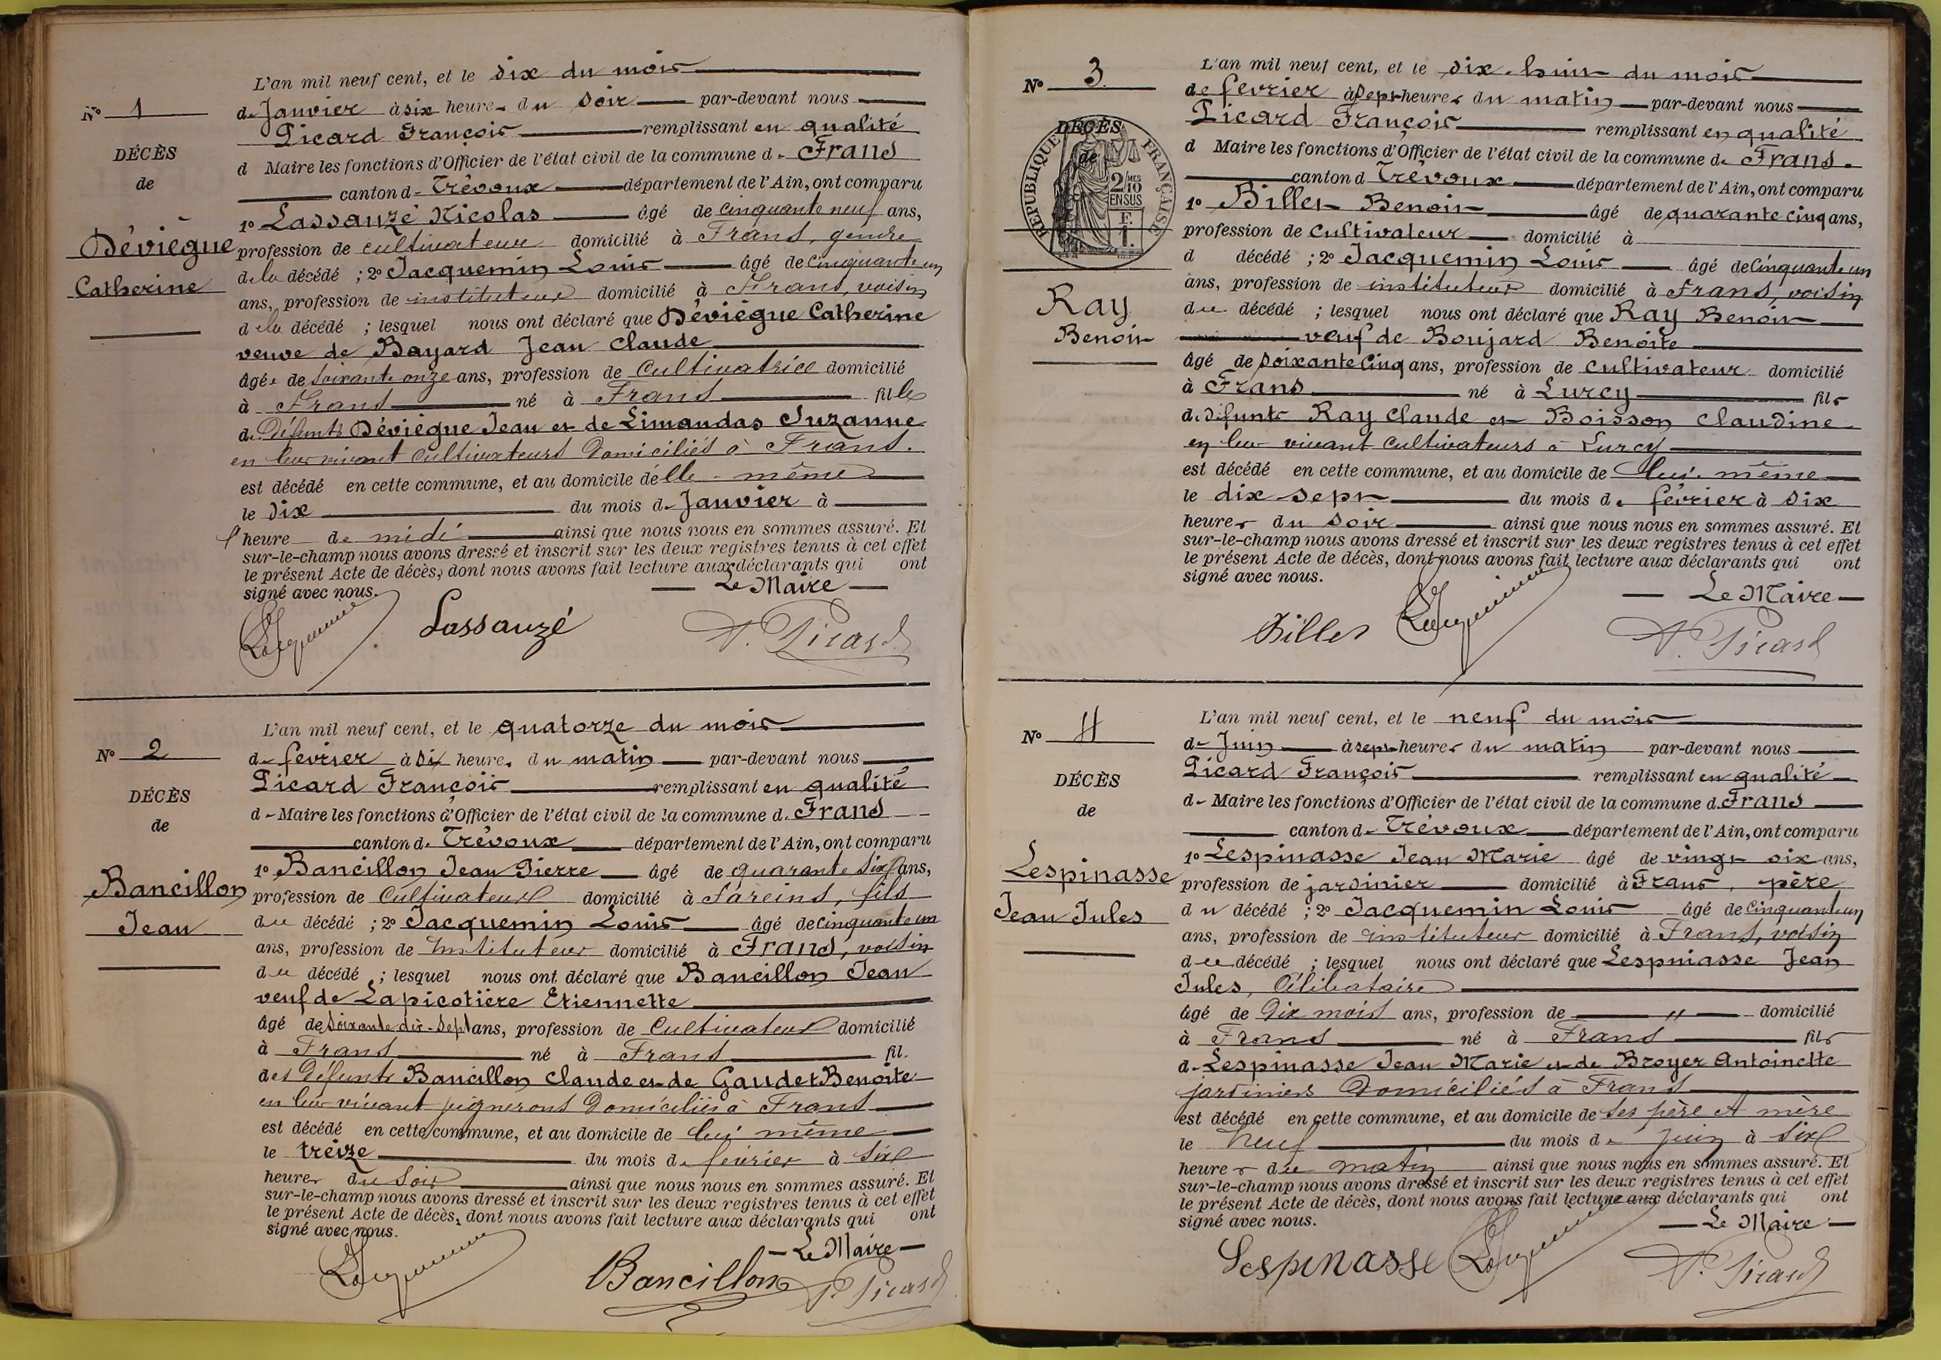 L'an mil neuf cent, et le dix du mois
N° 1
de Janvier à six heures du soir par-devant nous
Picard François remplissant en qualité
DÉCÈS
de
d Maire les fonctions d'Officier de l'état civil de la commune de Frans
canton de Trévoux département de l'Ain, ont comparu
1° Lassauzé Nicolas âgé de cinquante neuf ans,
Déviègue
Catherine
profession de cultivateur domicilié à Frans, gendre
de la décédé ; 2° Jacquemin Louis âgé de cinquante un
ans, profession de instituteur domicilié à Frans, voisin
de la décédé ; lesquel nous ont déclaré que Déviègue Catherine
veuve de Bayard Jean Claude
âgée de soixante onze ans, profession de Cultivatrice domicilié
à Frans né à Frans fille
de Défunts Déviègue Jean et de Limandas Suzanne
en leur vivant cultivateurs domiciliés à Frans.
est décédé en cette commune, et au domicile d'elle-même
le dix du mois de Janvier à
l'heure de midi ainsi que nous nous en sommes assuré. Et
sur-le-champ nous avons dressé et inscrit sur les deux registres tenus à cet effet
le présent Acte de décès, dont nous avons fait lecture aux déclarants qui ont
signé avec nous. Le Maire
Jacquemin Lassauzé F. Picard
L'an mil neuf cent, et le quatorze du mois
N° 2
de février à six heures du matin par-devant nous
Picard François remplissant en qualité
DÉCÈS
de
de Maire les fonctions d'Officier de l'état civil de la commune de Frans
canton de Trévoux département de l'Ain, ont comparu
1° Bancillon Jean Pierre âgé de quarante six ans,
Bancillon
Jean
profession de Cultivateur domicilié à Fareins, fils
du décédé ; 2° Jacquemin Louis âgé de cinquante un
ans, profession de Instituteur domicilié à Frans, voisin
du décédé ; lesquel nous ont déclaré que Bancillon Jean
veuf de Lapicotière Etiennette
âgé de soixante dix-sept ans, profession de Cultivateur domicilié
à Frans né à Frans fil.
des Défunts Bancillon Claude et de Gaudet Benoite
en leur vivant vignerons domiciliés à Frans
est décédé en cette commune, et au domicile de lui même
le treize du mois de février à six
heures du soir ainsi que nous nous en sommes assuré. Et
sur-le-champ nous avons dressé et inscrit sur les deux registres tenus à cet effet
le présent Acte de décès, dont nous avons fait lecture aux déclarants qui ont
signé avec nous.
Le Maire
Jacquemin Bancillon F. Picard
L'an mil neuf cent, et le dix-huit du mois
N° 3
de février à sept heures du matin par-devant nous
Picard François remplissant en qualité
DÉCÈS
de
RÉPUBLIQUE FRANÇAISE
2/10 MES
EN SUS
F.
1.
d Maire les fonctions d'Officier de l'état civil de la commune de Frans
canton d Trévoux département de l'Ain, ont comparu
1° Billet Benoit âgé de quarante cinq ans,
profession de Cultivateur domicilié à
d décédé ; 2° Jacquemin Louis âgé de cinquante un
Ray
Benoit
ans, profession de instituteur domicilié à Frans, voisin
du décédé ; lesquel nous ont déclaré que Ray Benoit
veuf de Boujard Benoite
âgé de soixante cinq ans, profession de cultivateur domicilié
à Frans né à Lurcy fils
de défunts Ray Claude et Boisson Claudine
en leur vivant cultivateurs à Lurcy
est décédé en cette commune, et au domicile de lui-même
le dix sept du mois de février à six
heures du soir ainsi que nous nous en sommes assuré. Et
sur-le-champ nous avons dressé et inscrit sur les deux registres tenus à cet effet
le présent Acte de décès, dont nous avons fait lecture aux déclarants qui ont
signé avec nous.
Le Maire
Billet Jacquemin F. Picard
L'an mil neuf cent, et le neuf du mois
N° 4
de Juin à sept heures du matin par-devant nous
Picard François remplissant en qualité
DÉCÈS
de
de Maire les fonctions d'Officier de l'état civil de la commune de Frans
canton de Trévoux département de l'Ain, ont comparu
1° Lespinasse Jean Marie âgé de vingt six ans,
Lespinasse
Jean Jules
profession de jardinier domicilié à Frans, père
du décédé ; 2° Jacquemin Louis âgé de cinquante un
ans, profession de instituteur domicilié à Frans, voisin
du décédé ; lesquel nous ont déclaré que Lespinasse Jean
Jules, Célibataire
âgé de Dix mois ans, profession de " domicilié
à Frans né à Frans fils
de Lespinasse Jean Marie et de Broyer Antoinette
jardiniers domiciliés à Frans
est décédé en cette commune, et au domicile de ses père et mère
le neuf du mois de juin à six
heures du matin ainsi que nous nous en sommes assuré. Et
sur-le-champ nous avons dressé et inscrit sur les deux registres tenus à cet effet
le présent Acte de décès, dont nous avons fait lecture aux déclarants qui ont
signé avec nous.
Le Maire
Lespinasse Jacquemin F. Picard